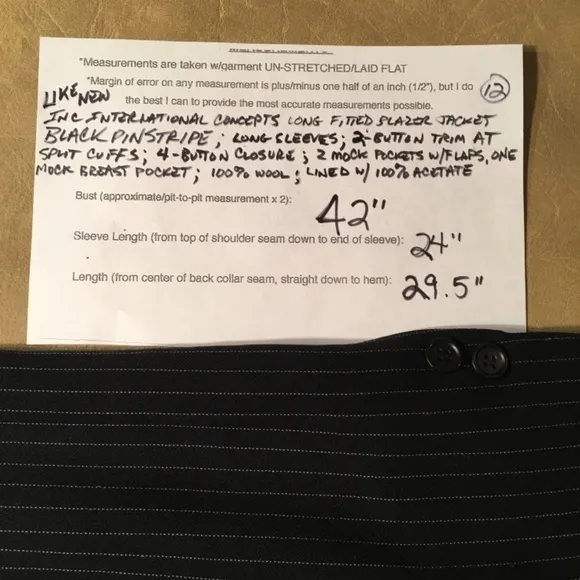 *Measurements are taken w/garment UN-STRETCHED/LAID FLAT
*Margin of error on any measurement is plus/minus one half of an inch (1/2"), but I do
the best I can to provide the most accurate measurements possible.
12
LIKE NEW
INC INTERNATIONAL CONCEPTS LONG FITTED BLAZER JACKET
BLACK PINSTRIPE; LONG SLEEVES; 2-BUTTON TRIM AT
SPLIT CUFFS; 4-BUTTON CLOSURE; 2 MOCK POCKETS W/FLAPS, ONE
MOCK BREAST POCKET; 100% WOOL; LINED W/ 100% ACETATE
Bust (approximate/pit-to-pit measurement x 2): 42"
Sleeve Length (from top of shoulder seam down to end of sleeve): 24"
Length (from center of back collar seam, straight down to hem): 29.5"